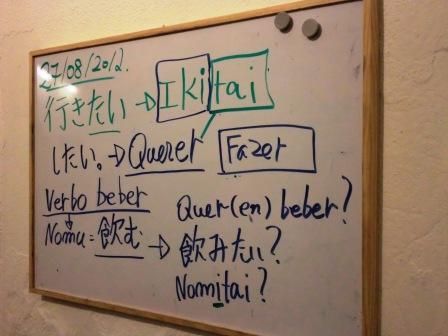 27/08/2012.
行きたい → Ikitai
したい。→ Querer Fazer
Verbo beber
Quer(en) beber?
Nomu = 飲む → 飲みたい?
Nomitai?